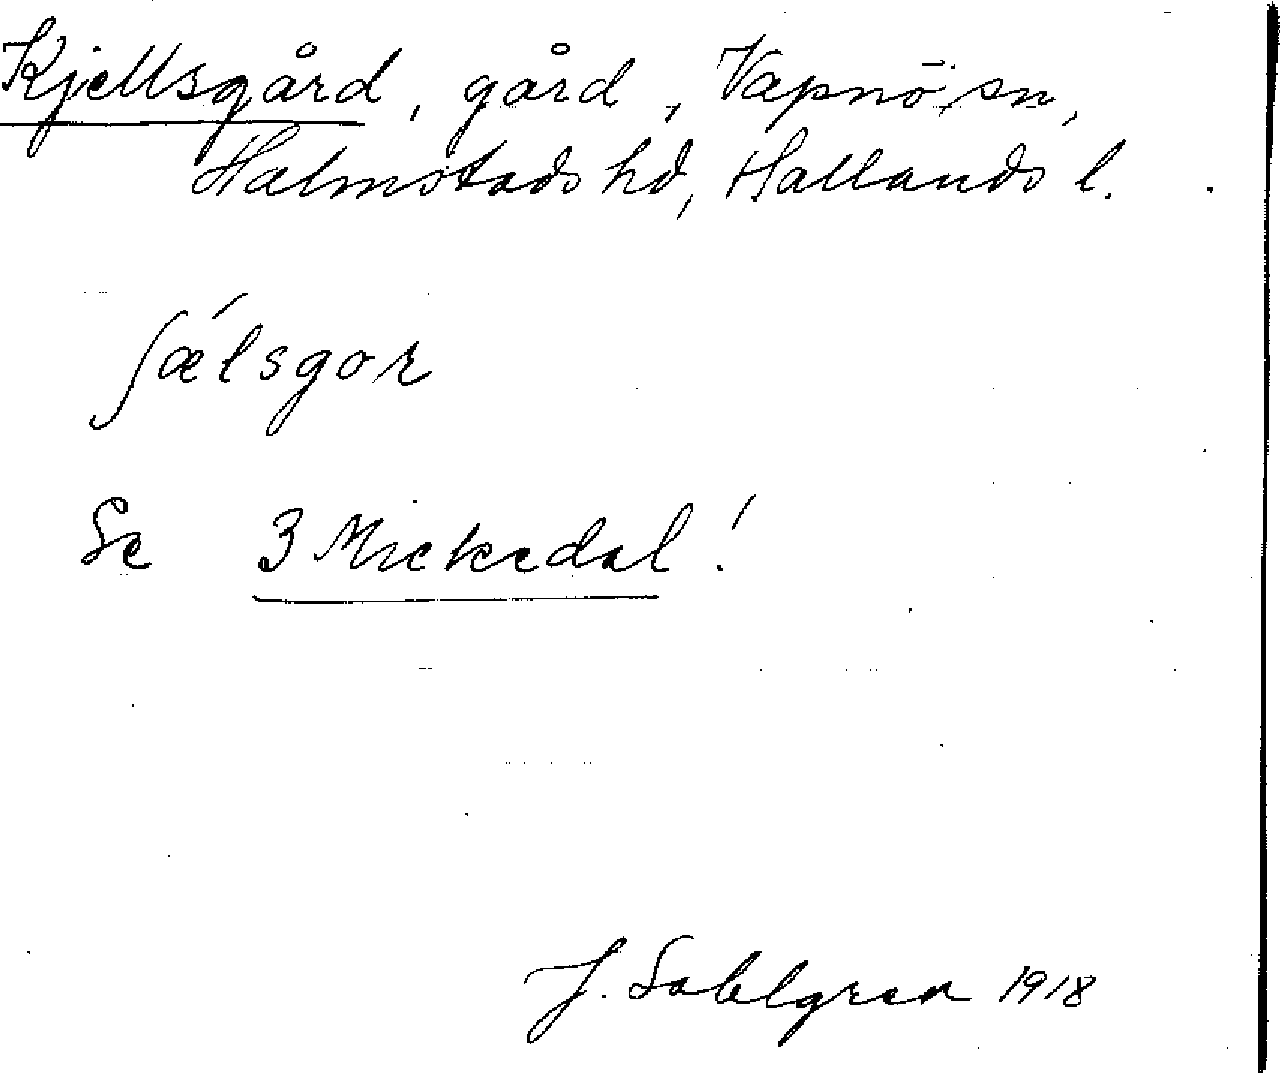 Kjellsgård, gård, Vapnö sn,
Halmstads hd, Hallands l.
ʃǽlsgor
Se 3 Mickedal!
J. Sahlgren 1918